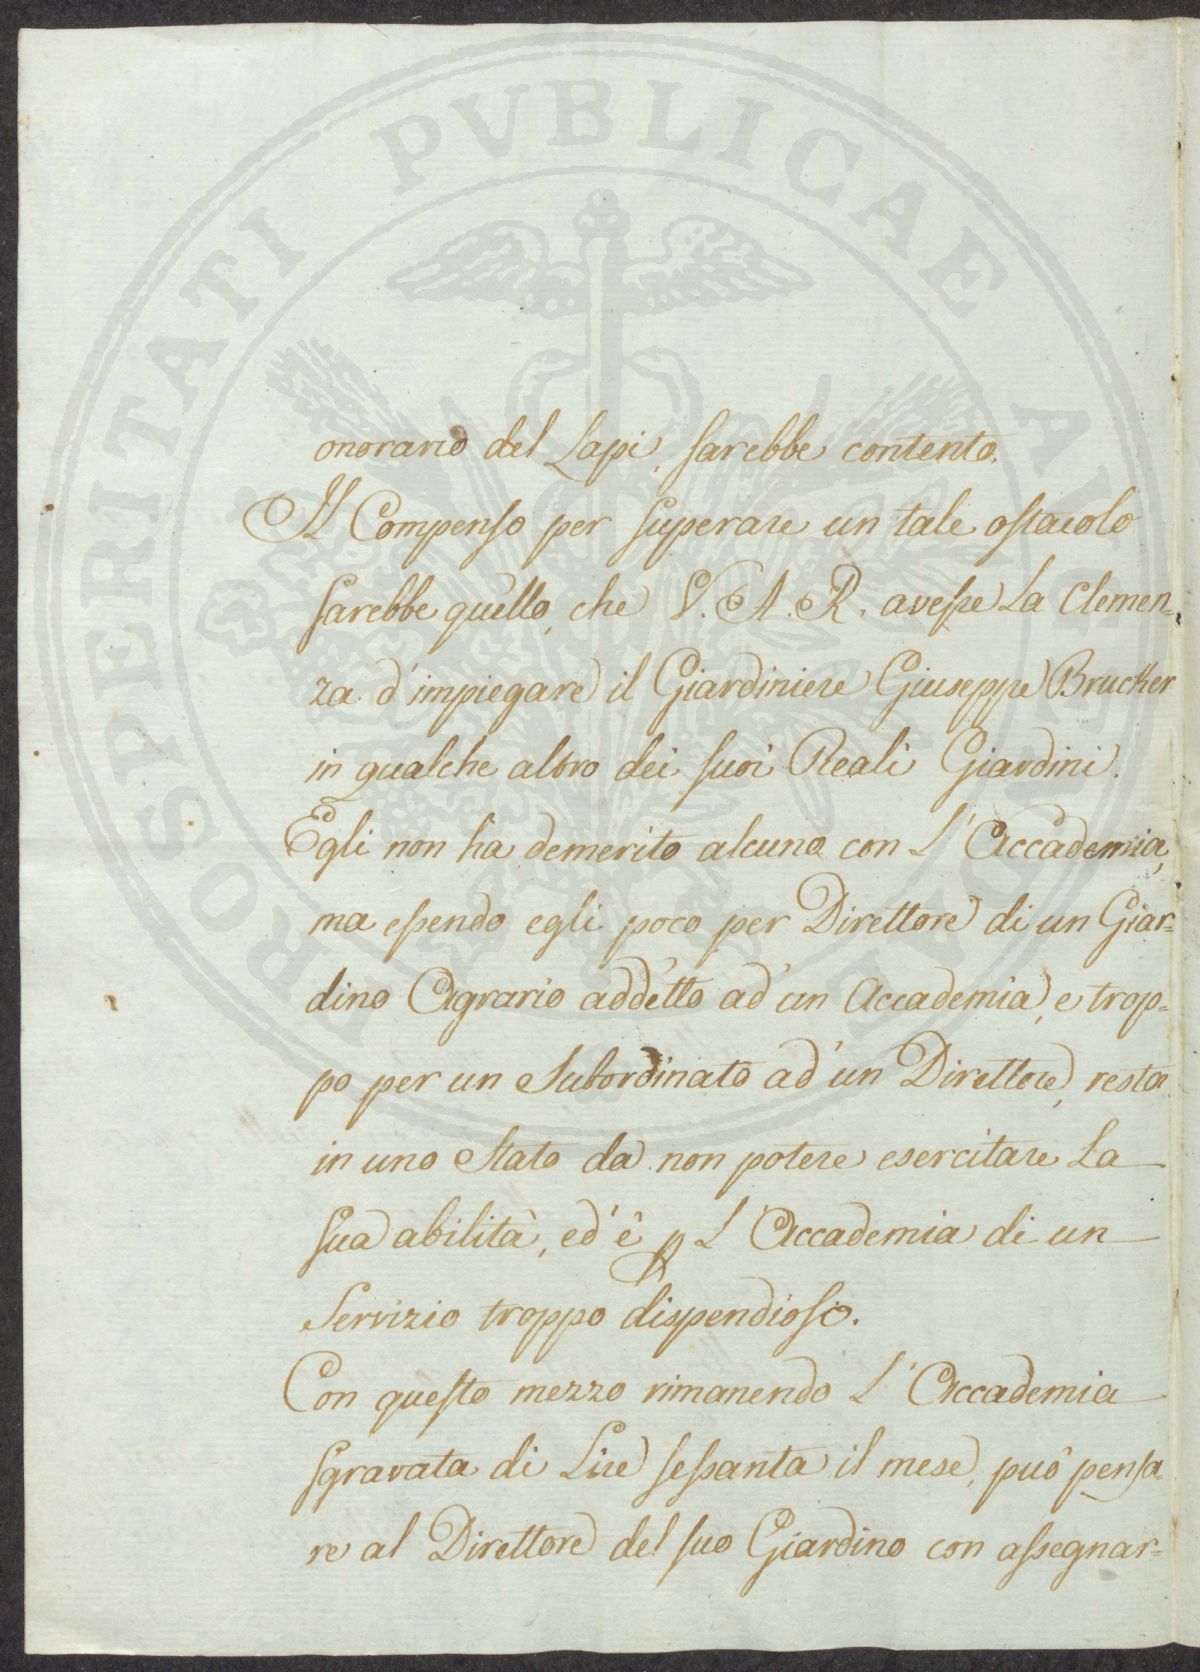 PROSPERITATI PVBLICAE AVGENDAE
onorario del Lapi, sarebbe contento.
Il Compenso per superare un tale ostacolo
sarebbe quello, che V. A. R. avesse La Clemen=
za d'impiegare il Giardiniere Giuseppe Brucker
in qualche altro dei suoi Reali Giardini.
Egli non ha demerito alcuno con L'Accademia,
ma essendo egli poco per Direttore di un Giar=
dino Agrario addetto ad'un Accademia, e trop=
po per un Subordinato ad'un Direttore, resta
in uno Stato da non potere esercitare La
sua abilità, ed'è p L'Accademia di un
Servizio troppo dispendioso.
Con questo mezzo rimanendo L'Accademia
sgravata di Lire sessanta il mese, può pensa=
re al Direttore del suo Giardino con assegnar=